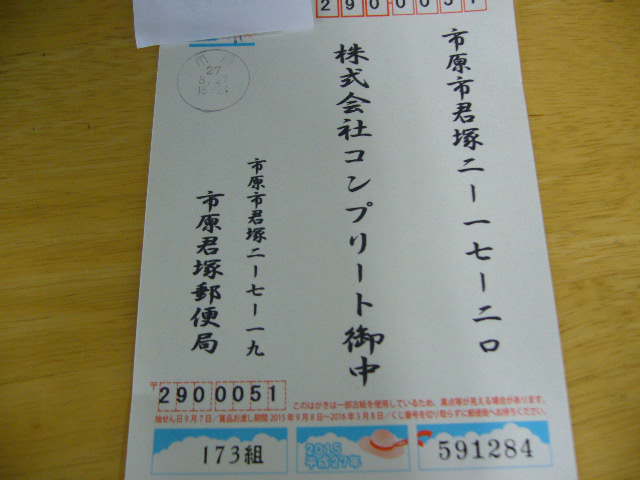 290-0051
市原市君塚二ー一七ー二〇
株式会社コンプリート御中
27
市原市君塚二ー七ー一九
市原君塚郵便局
〒
2900051
このはがきは一部古紙を使用しているため、黒点等が見える場合があります。
抽せん日9月7日/賞品お渡し期間2015年9月8日〜2016年3月8日/くじ番号を切り取らずに郵便局へお持ちください。
173組
2015
平成27年
591284